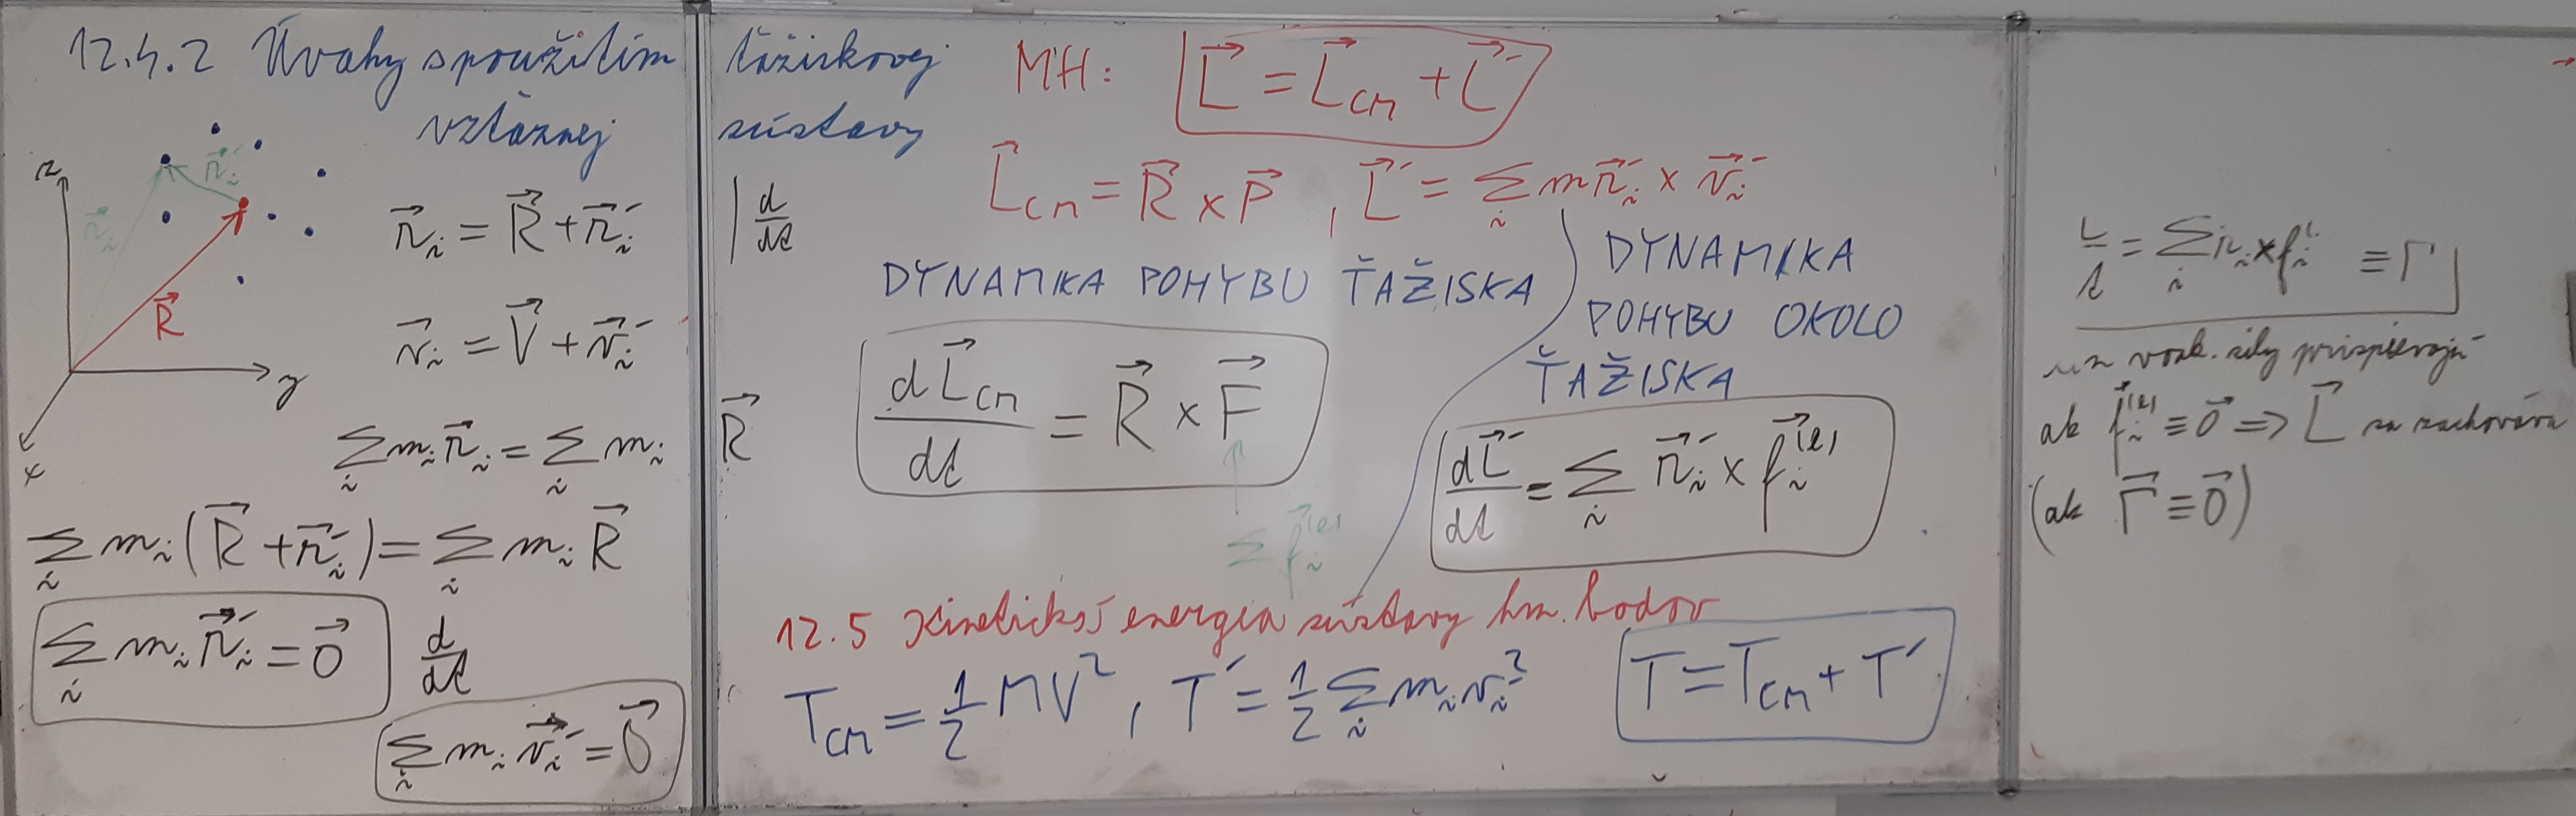 12.4.2 Úvahy s použitím ťažiskovej
vzťažnej sústavy
z
y
x
r⃗ᵢ
r⃗ᵢ′
R⃗
r⃗ᵢ = R⃗ + r⃗ᵢ′ | d/dt
v⃗ᵢ = V⃗ + v⃗ᵢ′
∑ᵢ mᵢ r⃗ᵢ = ∑ᵢ mᵢ R⃗
∑ᵢ mᵢ (R⃗ + r⃗ᵢ′) = ∑ᵢ mᵢ R⃗
∑ᵢ mᵢ r⃗ᵢ′ = 0⃗ d/dt
∑ᵢ mᵢ v⃗ᵢ′ = 0⃗
MH: L⃗ = L⃗cm + L⃗′
L⃗cm = R⃗ × P⃗ , L⃗′ = ∑ᵢ m r⃗ᵢ′ × v⃗ᵢ′
DYNAMIKA POHYBU ŤAŽISKA
dL⃗cm/dt = R⃗ × F⃗
↑
∑ f⃗ᵢ⁽ᵉ⁾
DYNAMIKA
POHYBU OKOLO
ŤAŽISKA
dL⃗′/dt = ∑ᵢ r⃗ᵢ′ × f⃗ᵢ⁽ᵉ⁾
12.5 Kinetická energia sústavy hm. bodov
Tcm = ½ MV² , T′ = ½ ∑ᵢ mᵢ vᵢ′²
T = Tcm + T′
= ∑ᵢ rᵢ × fᵢ ≡ Γ
vonk. sily prispievajú
ak f⃗ᵢ⁽ᵉ⁾ ≡ 0⃗ => L⃗ sa zachováva
(ak Γ⃗ ≡ 0⃗)